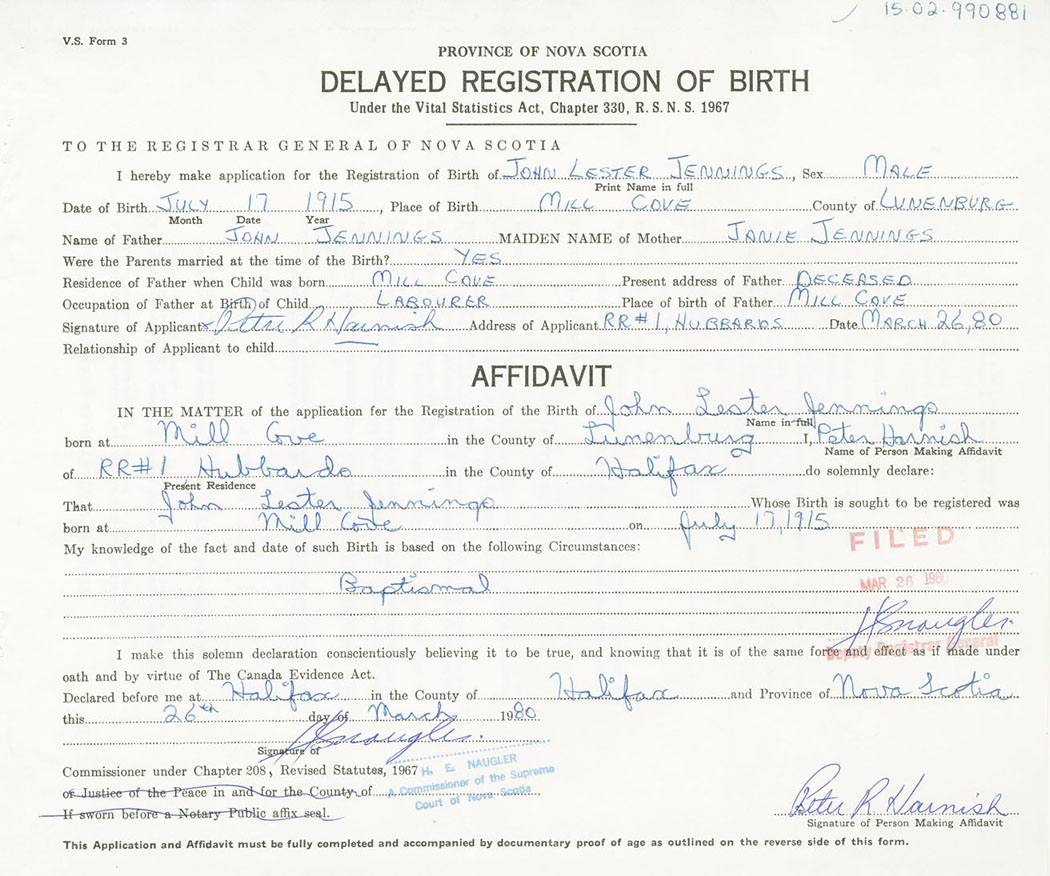 15-02-990881
V.S. Form 3
PROVINCE OF NOVA SCOTIA
DELAYED REGISTRATION OF BIRTH
Under the Vital Statistics Act, Chapter 330, R. S. N. S. 1967
TO THE REGISTRAR GENERAL OF NOVA SCOTIA
I hereby make application for the Registration of Birth of JOHN LESTER JENNINGS, Sex MALE
Print Name in full
Date of Birth JULY 17 1915, Place of Birth MILL COVE County of LUNENBURG
Month Date Year
Name of Father JOHN JENNINGS MAIDEN NAME of Mother JANIE JENNINGS
Were the Parents married at the time of the Birth? YES
Residence of Father when Child was born MILL COVE Present address of Father DECEASED
Occupation of Father at Birth of Child LABOURER Place of birth of Father MILL COVE
Signature of Applicant x Peter R Harnish Address of Applicant RR#1, HUBBARDS Date MARCH 26, 80
Relationship of Applicant to child
AFFIDAVIT
IN THE MATTER of the application for the Registration of the Birth of John Lester Jennings
Name in full
born at Mill Cove in the County of Lunenburg I, Peter Harnish
Name of Person Making Affidavit
of RR#1 Hubbards in the County of Halifax do solemnly declare:
Present Residence
That John Lester Jennings Whose Birth is sought to be registered was
born at Mill Cove on July 17, 1915
My knowledge of the fact and date of such Birth is based on the following Circumstances:
FILED
Baptismal
MAR 26 1980
HE Naugler
Deputy Registrar General
I make this solemn declaration conscientiously believing it to be true, and knowing that it is of the same force and effect as if made under
oath and by virtue of The Canada Evidence Act.
Declared before me at Halifax in the County of Halifax and Province of Nova Scotia
this 26th day of March 1980
HE Naugler
Signature of
Commissioner under Chapter 208, Revised Statutes, 1967
H. E. NAUGLER
A Commissioner of the Supreme
Court of Nova Scotia
of Justice of the Peace in and for the County of
If sworn before a Notary Public affix seal.
Peter R Harnish
Signature of Person Making Affidavit
This Application and Affidavit must be fully completed and accompanied by documentary proof of age as outlined on the reverse side of this form.